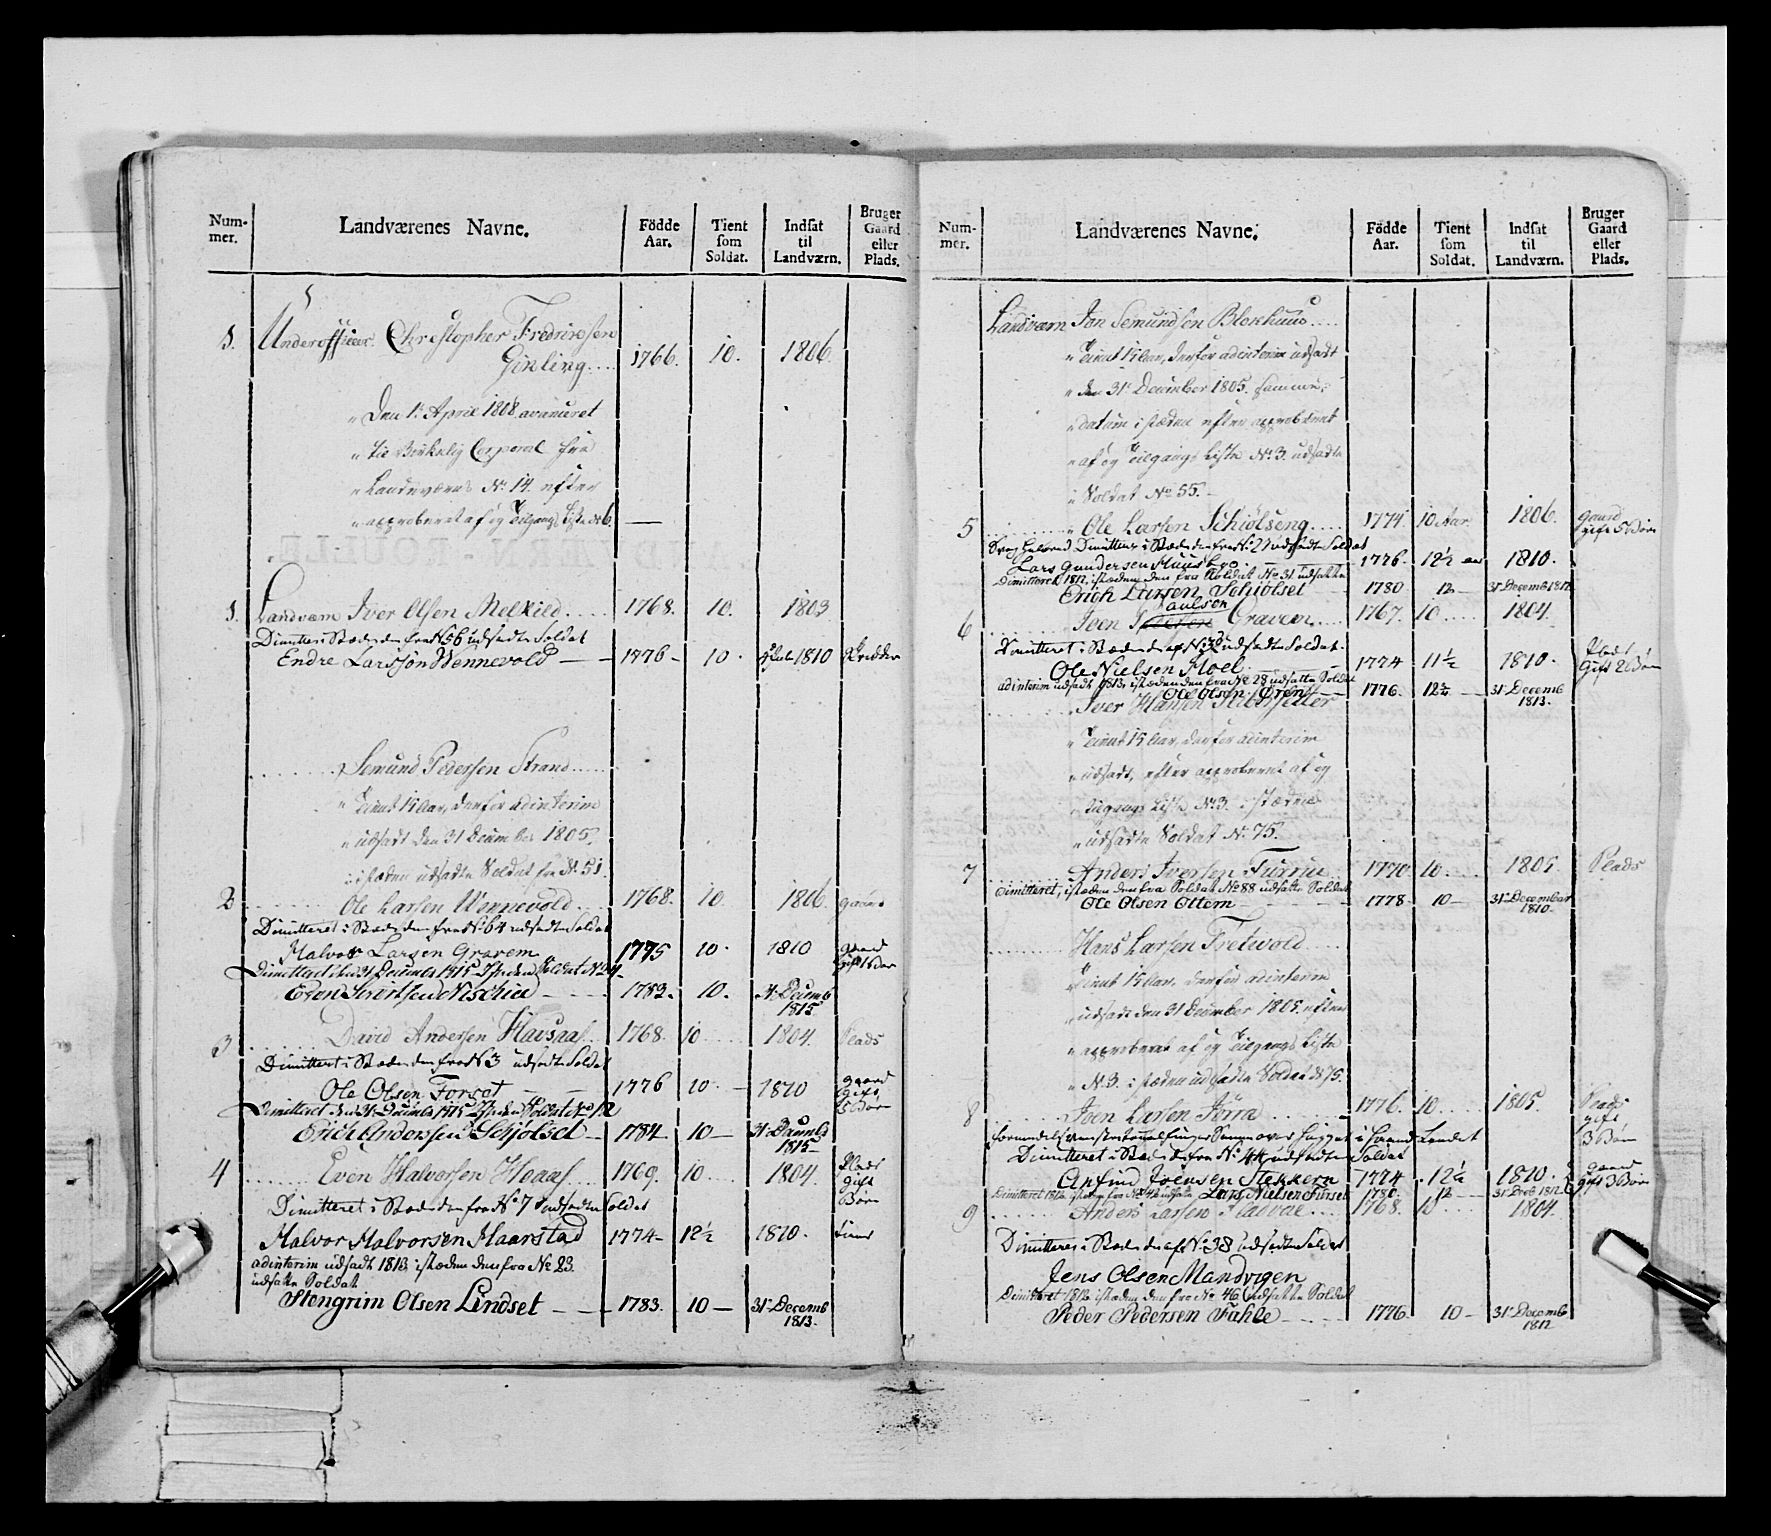 Num-
mer.
Landværenes Navne.
Födde
Aar.
Tient
som
Soldat.
Indsat
til
Landværn.
Bruger
Gaard
eller
Plads.
1. Underofficeer Christopher Fredrichsen
Ginling 1766. 10. 1806.
Den 1. April 1808 avanceret
til Virkelig Corporal fra
Landeværns No 14. efter
approberet af og Tilgangs Liste No 6.
1. Landværn Iver Olsen Melkild 1768. 10. 1803
Dimitteret i Stæden den fra No 56 udsadte Soldat
Endre Larssøn Wennevold 1776 10. 1810
Semund Pedersen Strand
Tient 15 Aar, derfor ad interim
udsadt den 31 December 1805.
i stæden udsadte Soldat fra No 51.
2 Ole Larsen Wennevold 1768. 10 1806. gaard
Dimitteret i Stæden den fra No 64 udsadte Soldat
Halvor Larsen Gravem 1775 10. 1810 gaard
Dimitteret den 31 December 1815 Soldat No 24
Even Sivertsen 1783. 10. 31 Decemb
1815
3 David Andersen Havsaas 1768 10 1804. Plads
Dimitteret i Stæden den fra No 3 udsadte Soldat
Ole Olsen Forset 1776 10. 1810 gaard
Gift
5 Børn
Dimitteret den 31 December 1815 Soldat No 12
Erich Andersen Schjølset 1784 10 31 Decemb
1815
4 Even Halvorsen Hoaas 1769. 10 1804. Plads
Gift
Børn
Dimitteret i Stæden den fra No 7 udsadte Soldat
Halvor Halvorsen Haarstad 1774 12½ 1810.
adinterim udsadt 1813 i stæden den fra No 23.
udsatte Soldat
Stengrim Olsen Lindset 1783. 10 31 Decemb
1813.
Num-
mer.
Landværenes Navne.
Födde
Aar.
Tient
som
Soldat.
Indsat
til
Landværn.
Bruger
Gaard
eller
Plads.
Landværn Jon Semundsen Blokhuus
Tient 15 Aar, derfor ad interim udsadt
den 31 December 1805. samme
datum i stæden efter approberet
af og Tilgangs Liste No 3. udsadte
Soldat No 55.
5 Ole Larsen Schiölseng 1774. 10 Aar 1806. gaard
gift 5 Børn
Dimitteret i Stæden den fra No 21 udsadte Soldat
Lars Gundersen 1776. 12½ 1810.
Dimitteret 1812. i stæden den fra Soldat No 31 udsatte
Erich Larsen Schiölset 1780 12 31 Decemb 1812
6 Joen Paulsen Gravem 1767. 10 1804.
Dimitteret i Stæden den af No 32 udsadte Soldat.
Ole Nielsen Moel 1774 11½ 1810. Plads
Gift 2 Børn
adinterim udsadt 1813, i stæden den fra No 28 udsatte Soldat
Ole Olsen Øren 1776. 12½ 31 Decemb
1813.
Iver Hansen
Tient 15 Aar, derfor ad interim
udsadt, efter approberet af og
Tilgangs Liste No 3. i stæden
udsadte Soldat No 75.
7 Anders Iversen Furru 1770 10. 1805 Plads
Dimitteret, i stæden den fra Soldat No 88 udsatte Soldat
Ole Olsen Ottem 1778 10 31 December
1810.
Hans Larsen Tretvold
Tient 15 Aar, derfor ad interim
udsadt den 31 December 1805. efter
approberet af og Tilgangs Liste
No 3. i stæden udsadte Soldat No 75.
8 Joen Larsen 1776. 10 1805. Plads
gift
3 Børn
Dimitteret i Stæden den fra No 44 udsadte Soldat
Arfind Joensen Stekkern 1774 12½ 1810. gaard
gift 3 Børn
Dimitteret 1812. i stæden fra No 42 udsatte Lars Nielsen Furset 1780. 12 31 Decb 1812.
9 Anders Larsen 1768. 10 1804.
Dimitteret i Stæden den af No 38 udsadte Soldat
Jens Olsen Mandvigen
Dimitteret 1812 i stæden den fra No 46 udsatte Soldat
Peder Pedersen Fahle 1776 10 31 Decemb
1812